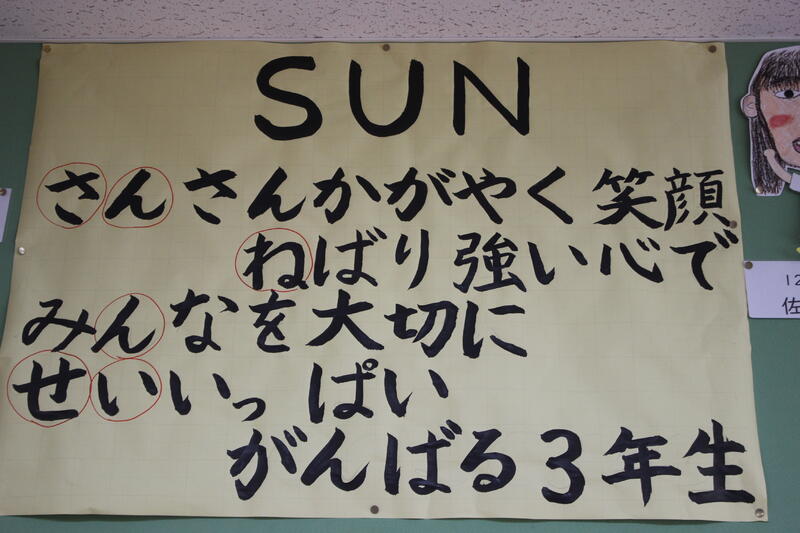 SUN
さんさんかがやく笑顔
ねばり強い心で
みんなを大切に
せいいっぱい
がんばる3年生
12
佐